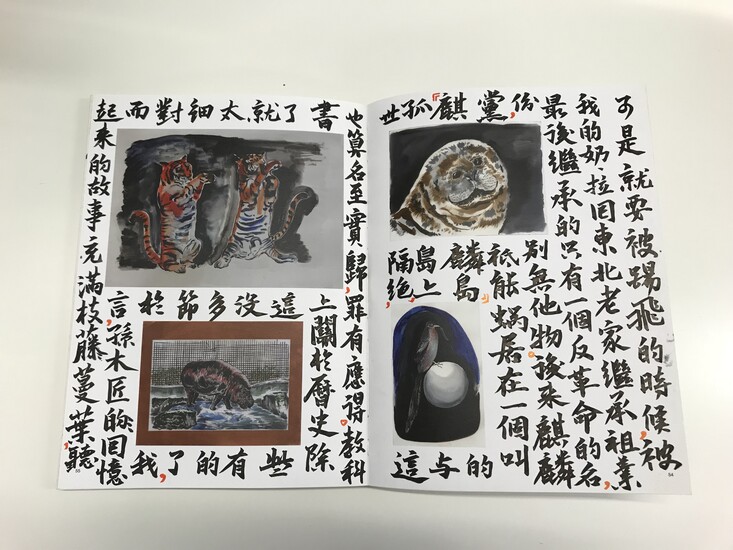 可是就要被踢飛的時候,被
我的奶拉回東北老家繼承祖業,
最後繼承的只有一個反革命的名
份,別無他物。後來麒麟
黨,祇能蝸居在一個叫
『麒麟島』的
孤島上与
世隔絕,這
54
也算名至實歸,罪有應得。教科
書上關於曆史除
了這些
就沒有
太多的
細節了,
對於我
而言,孫木匠的回憶
起來的故事充滿枝藤蔓葉,聽
55